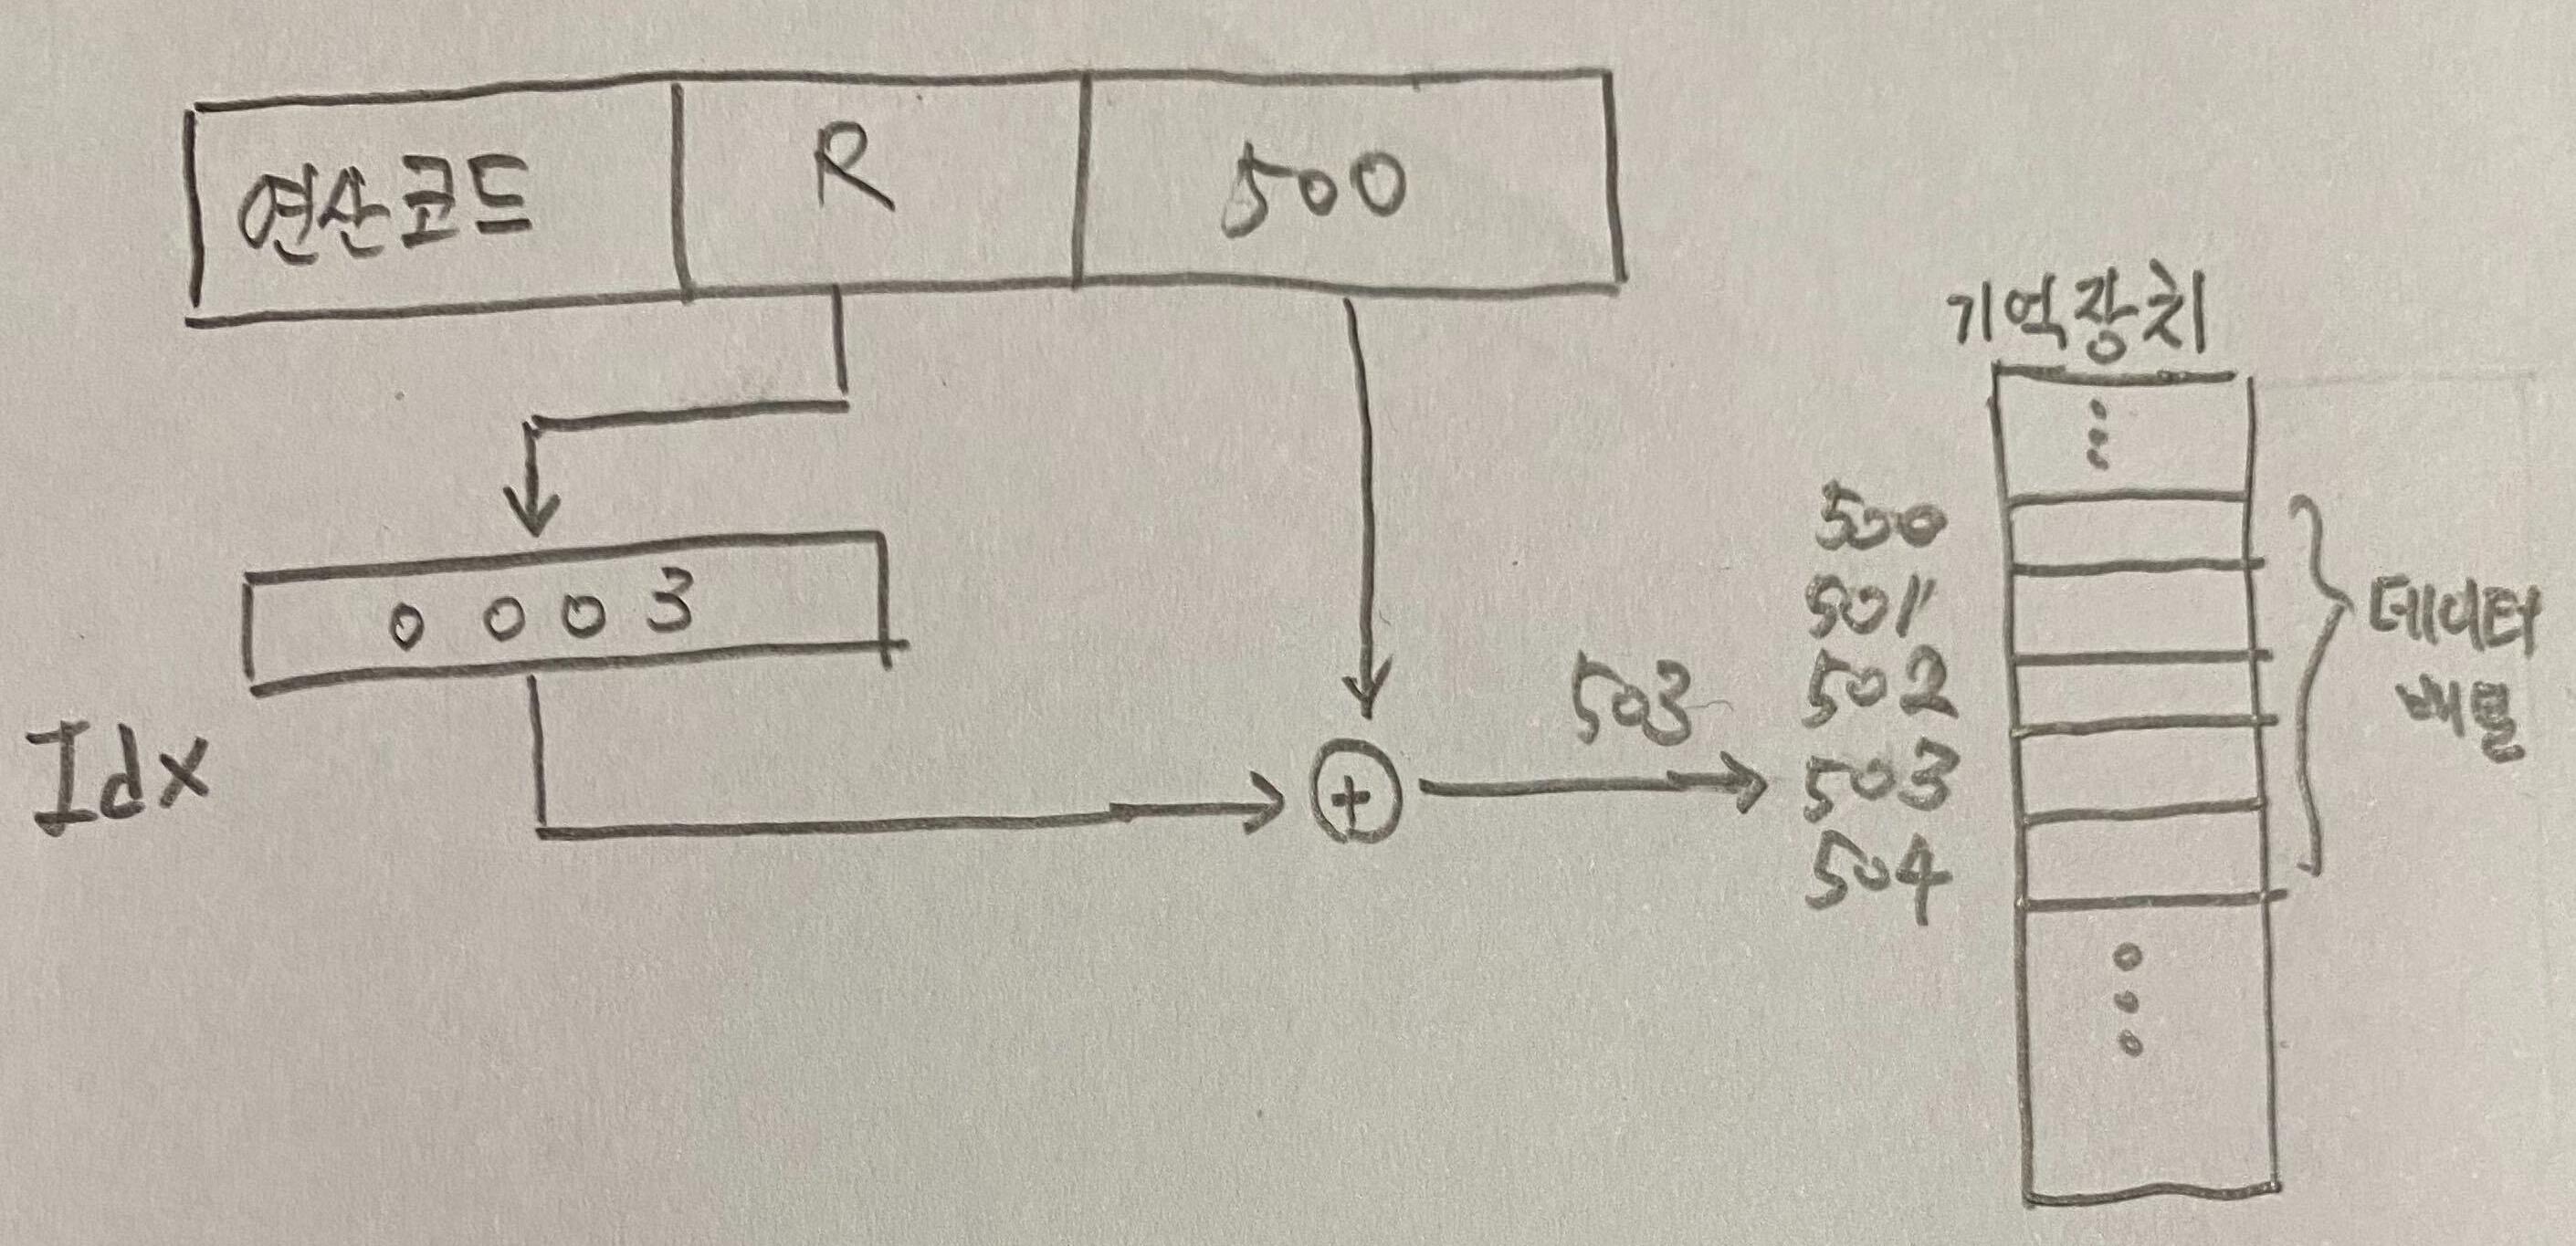 연산코드 R 500
기억장치
0 0 0 3
Idx
503
500
501
502
503
504
데이터
배열